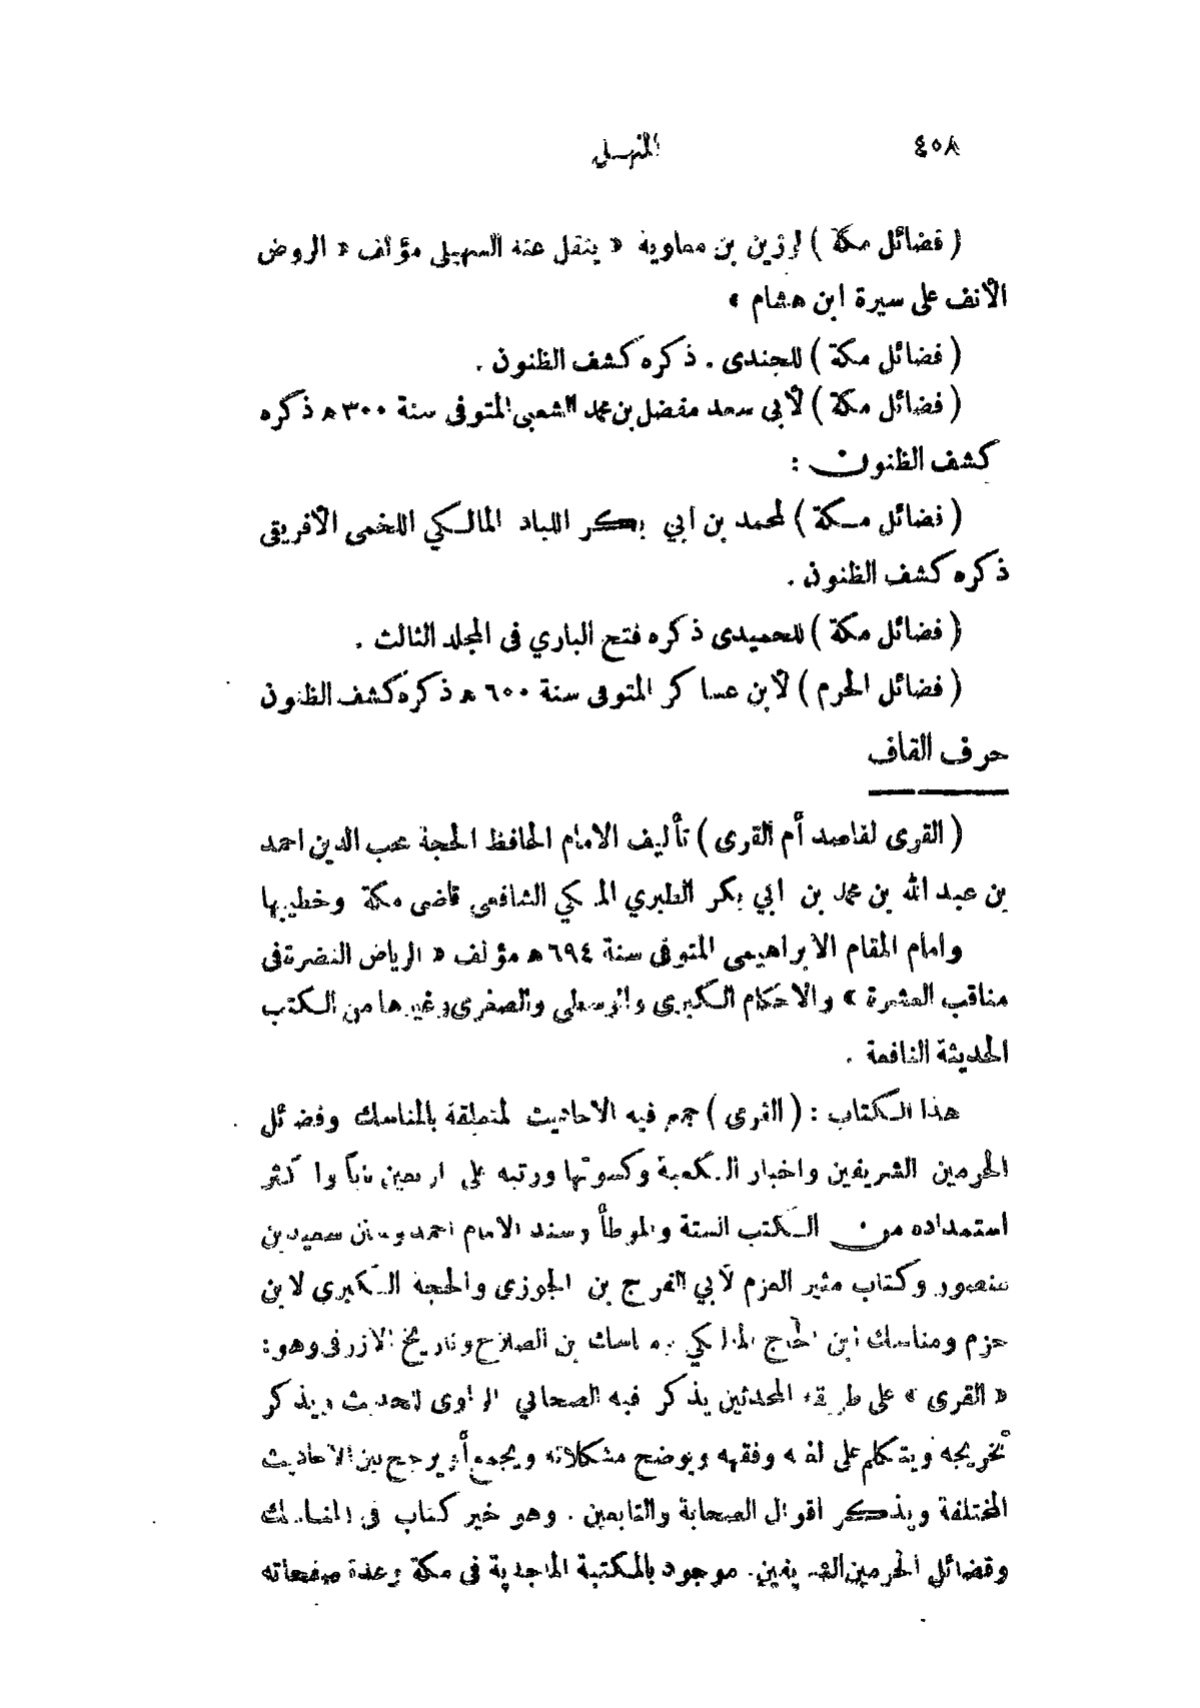 ٤٥٨
المنهل
( فضائل مكة ) لرزين بن معاوية « ينقل عنه السهيلى مؤلف « الروض
الأنف على سيرة ابن هشام »
( فضائل مكة ) للجندى . ذكره كشف الظنون .
( فضائل مكة ) لأبي سعد مفضل بن محمد الشعبى المتوفى سنة ٣٠٠ ه ذكره
كشف الظنون :
( فضائل مكة ) لمحمد بن أبي بكر اللباد المالكي اللخمى الأفريقى
ذكره كشف الظنون .
( فضائل مكة ) للحميدى ذكره فتح الباري فى المجلد الثالث .
( فضائل الحرم ) لأبن عساكر المتوفى سنة ٦٠٠ ه ذكره كشف الظنون
حرف القاف
( القرى لقاصد أم القرى ) تأليف الامام الحافظ الحجة محب الدين احمد
بن عبد الله بن محمد بن ابي بكر الطبري المكي الشافعى قاضى مكة وخطيبها
وامام المقام الابراهيمى المتوفى سنة ٦٩٤ ه مؤلف « الرياض النضرة فى
مناقب العشرة » والاحكام الكبرى والوسطى والصغرى وغيرها من الكتب
الحديثة النافعة .
هذا الكتاب : ( القرى ) جمع فيه الاحاديث المتعلقة بالمناسك وفضائل
الحرمين الشريفين واخبار الكعبة وكسوتها ورتبه على اربعين باباً واكثر
استمداده من الكتب الستة والموطأ ومسند الامام احمد وسنن سعيد بن
منصور وكتاب مثير العزم لأبي الفرج بن الجوزى والحجة الكبرى لابن
حزم ومناسك ابن الحاج المالكي ومناسك بن الصلاح وتاريخ الازرقى وهو:
« القرى » على طريقة المحدثين يذكر فيه الصحابي الراوى للحديث ويذكر
تخريجه ويتكلم على لغته وفقهه ويوضح مشكلاته ويجمع أو يرجح بين الاحاديث
المختلفة ويذكر اقوال الصحابة والتابعين . وهو خير كتاب فى المناسك
وفضائل الحرمين الشريفين. موجود بالمكتبة الماجدية فى مكة وعدة صفحاته